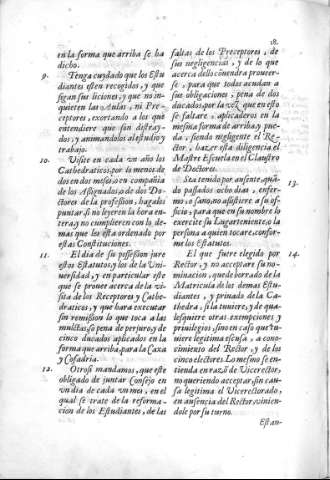 18.
en la forma que arriba se ha
dicho.
9. Tenga cuydado que los Estu
diantes esten recogidos, y que
sigan sus liciones, y que no in-
quieten las Aulas, ni Pre-
ceptores, exortando a los que
entendiere que son distray-
dos, y animandolos al estudio y
trabajo.
10. Visite en cada vn año los
Cathedraticos, por lo menos de
dos en dos meses, en compañia
de los Assignados, o de dos Do-
ctores de la profession, hagalos
puntar si no leyeren la hora en-
tera, y no cumplieren con lo de-
mas que les està ordenado por
estas Constituciones.
11. El dia de su possession jure
estos Estatutos, y los de la Vni-
uersidad, y en particular este
que se proner acerca de la vi-
sita de los Receptores y Cathe-
draticos, y que hara executar
sin remission lo que toca a las
multas, so pena de perjuro, y de
cinco ducados aplicados en la
forma que arriba, para la Caxa
y Cofadria.
12. Otrosi mandamos, que este
obligado de juntar Consejo en
vn dia de cada vn mes, en el
qual se trate de la reforma-
cion de los Estudiantes, de las
faltas de los Preceptores, de
sus negligencias, y de lo que
acerca dello cõuendra proueer-
se, para que todos acudan a
sus obligaciones, pena de dos
ducados, por la vez que en esto
se faltare, aplicaderos en la
mesma forma de arriba, y pue-
da, siendo negligente el Re-
ctor, hazer esta diligencia el
Maestre Escuela en el Claustro
de Doctores.
13. Sea tenido por ausente, quãdo
pasados ocho dias, enfer-
mo, o sano, no assistiere a su of-
ficio, para que en su nombre lo
exercite su Lugarteniente, o la
persona a quien tocare, confor-
me los Estatutos.
14. El que fuere elegido por
Rector, y no acceptare su no-
minacion, quede borrado de la
Matricula de los demas Estu-
diantes, y priuado de la Ca-
thedra, si la tuuiere, y de qua-
lesquiere otras exempciones y
priuilegios, sino en caso que tu-
uiere legitima escusa, a cono-
cimiento del Rector, y de los
cinco electores. Lo mesmo se en-
tienda en razõ de Vicerector,
no queriendo acceptar, sin cau-
sa legitima el Vicerectorado,
en ausencia del Rector, vinien-
dole por su turno.
Estan-